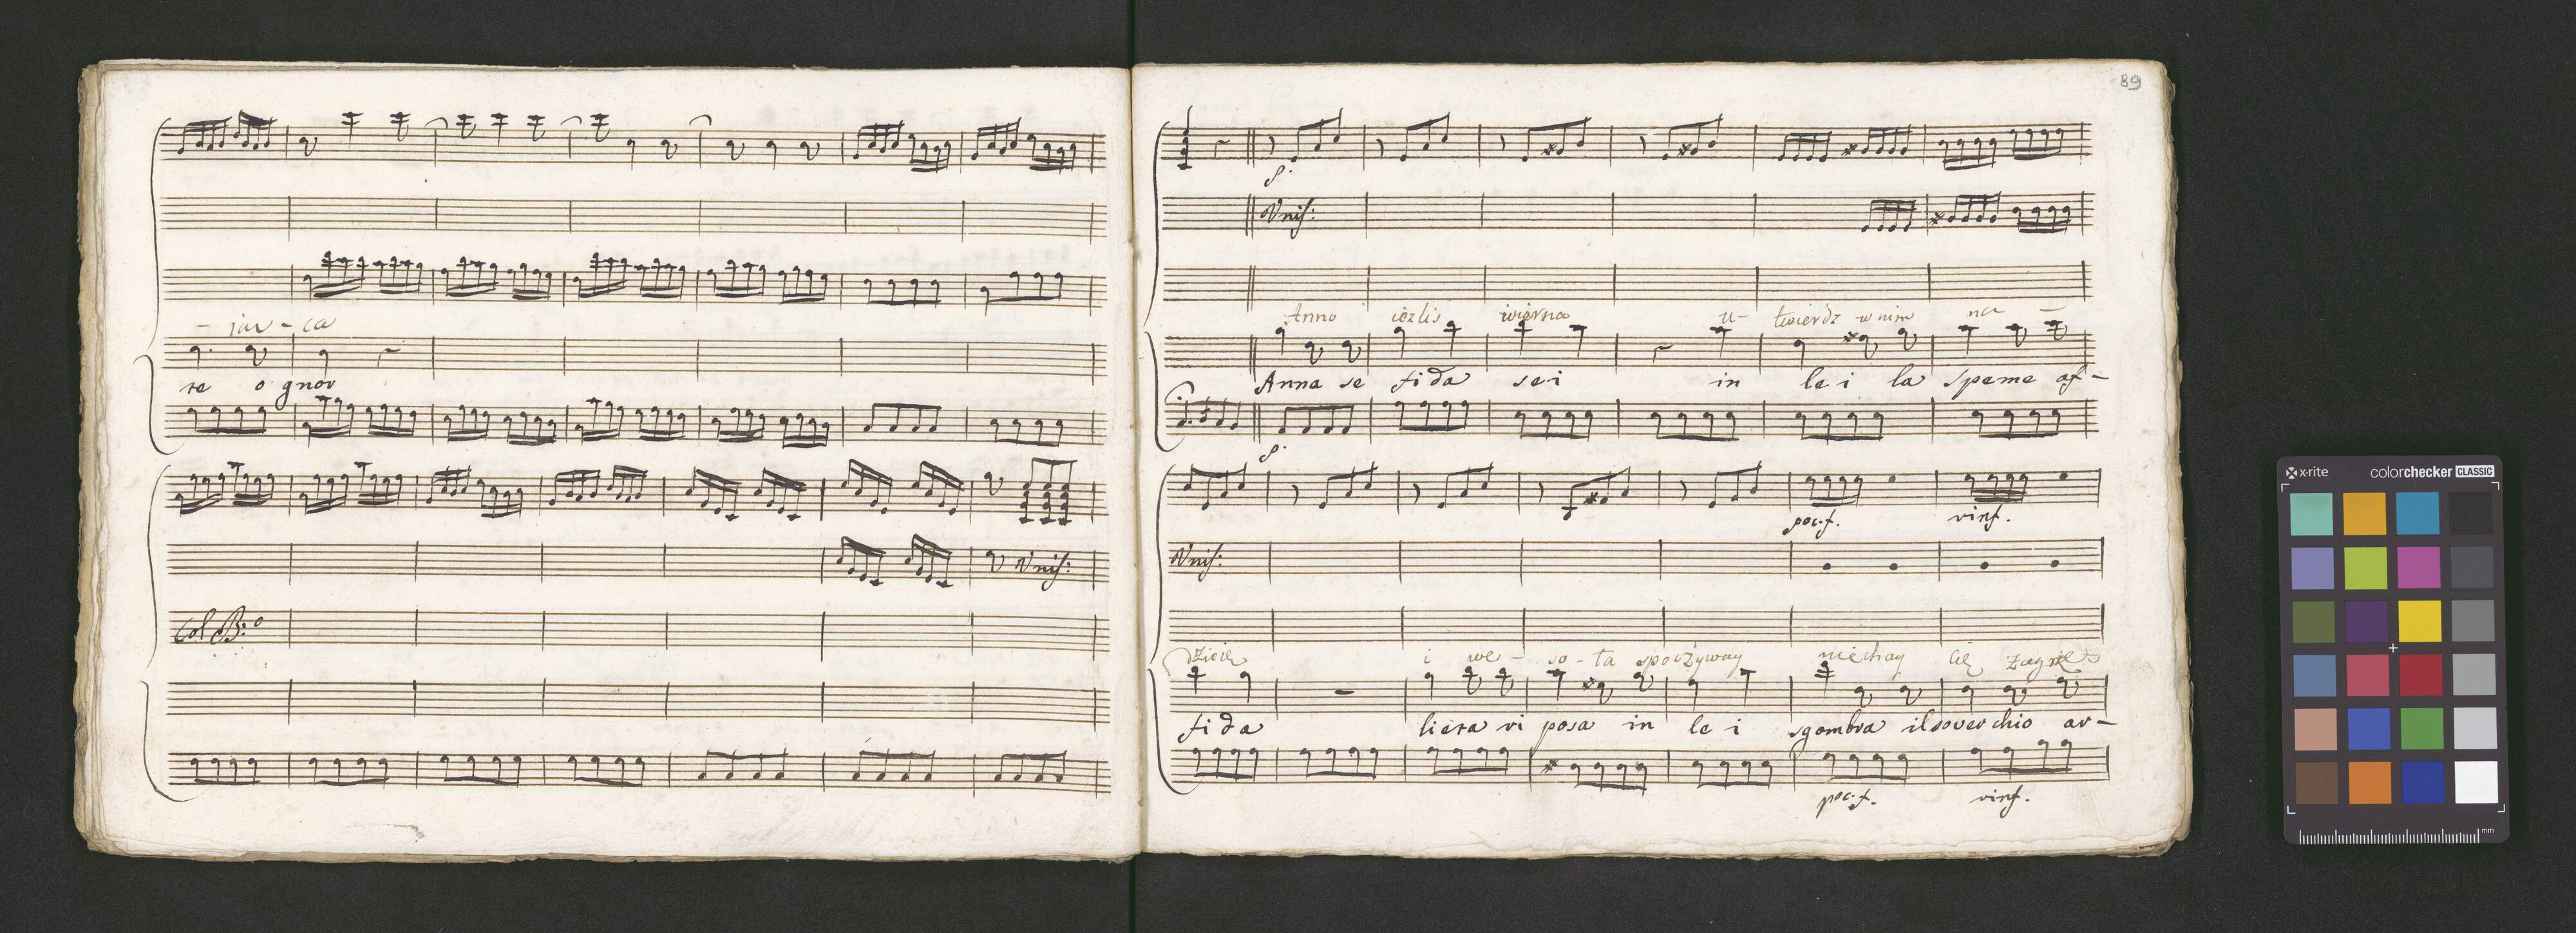 - jąca
re o gnor
Vnis:
Col B:o
89
p.
Vnis:
Anno ieżliś wierna u- twierdz w nim na -
Anna se fida sei in lei la speme af-
p.
poc. f. rinf.
Vnis:
dzieię i we - so - ła spoczyway niechay Cię
fida liera ri posa in lei sgombra il soverchio ar-
poc. f. rinf.
x-rite colorchecker CLASSIC
mm